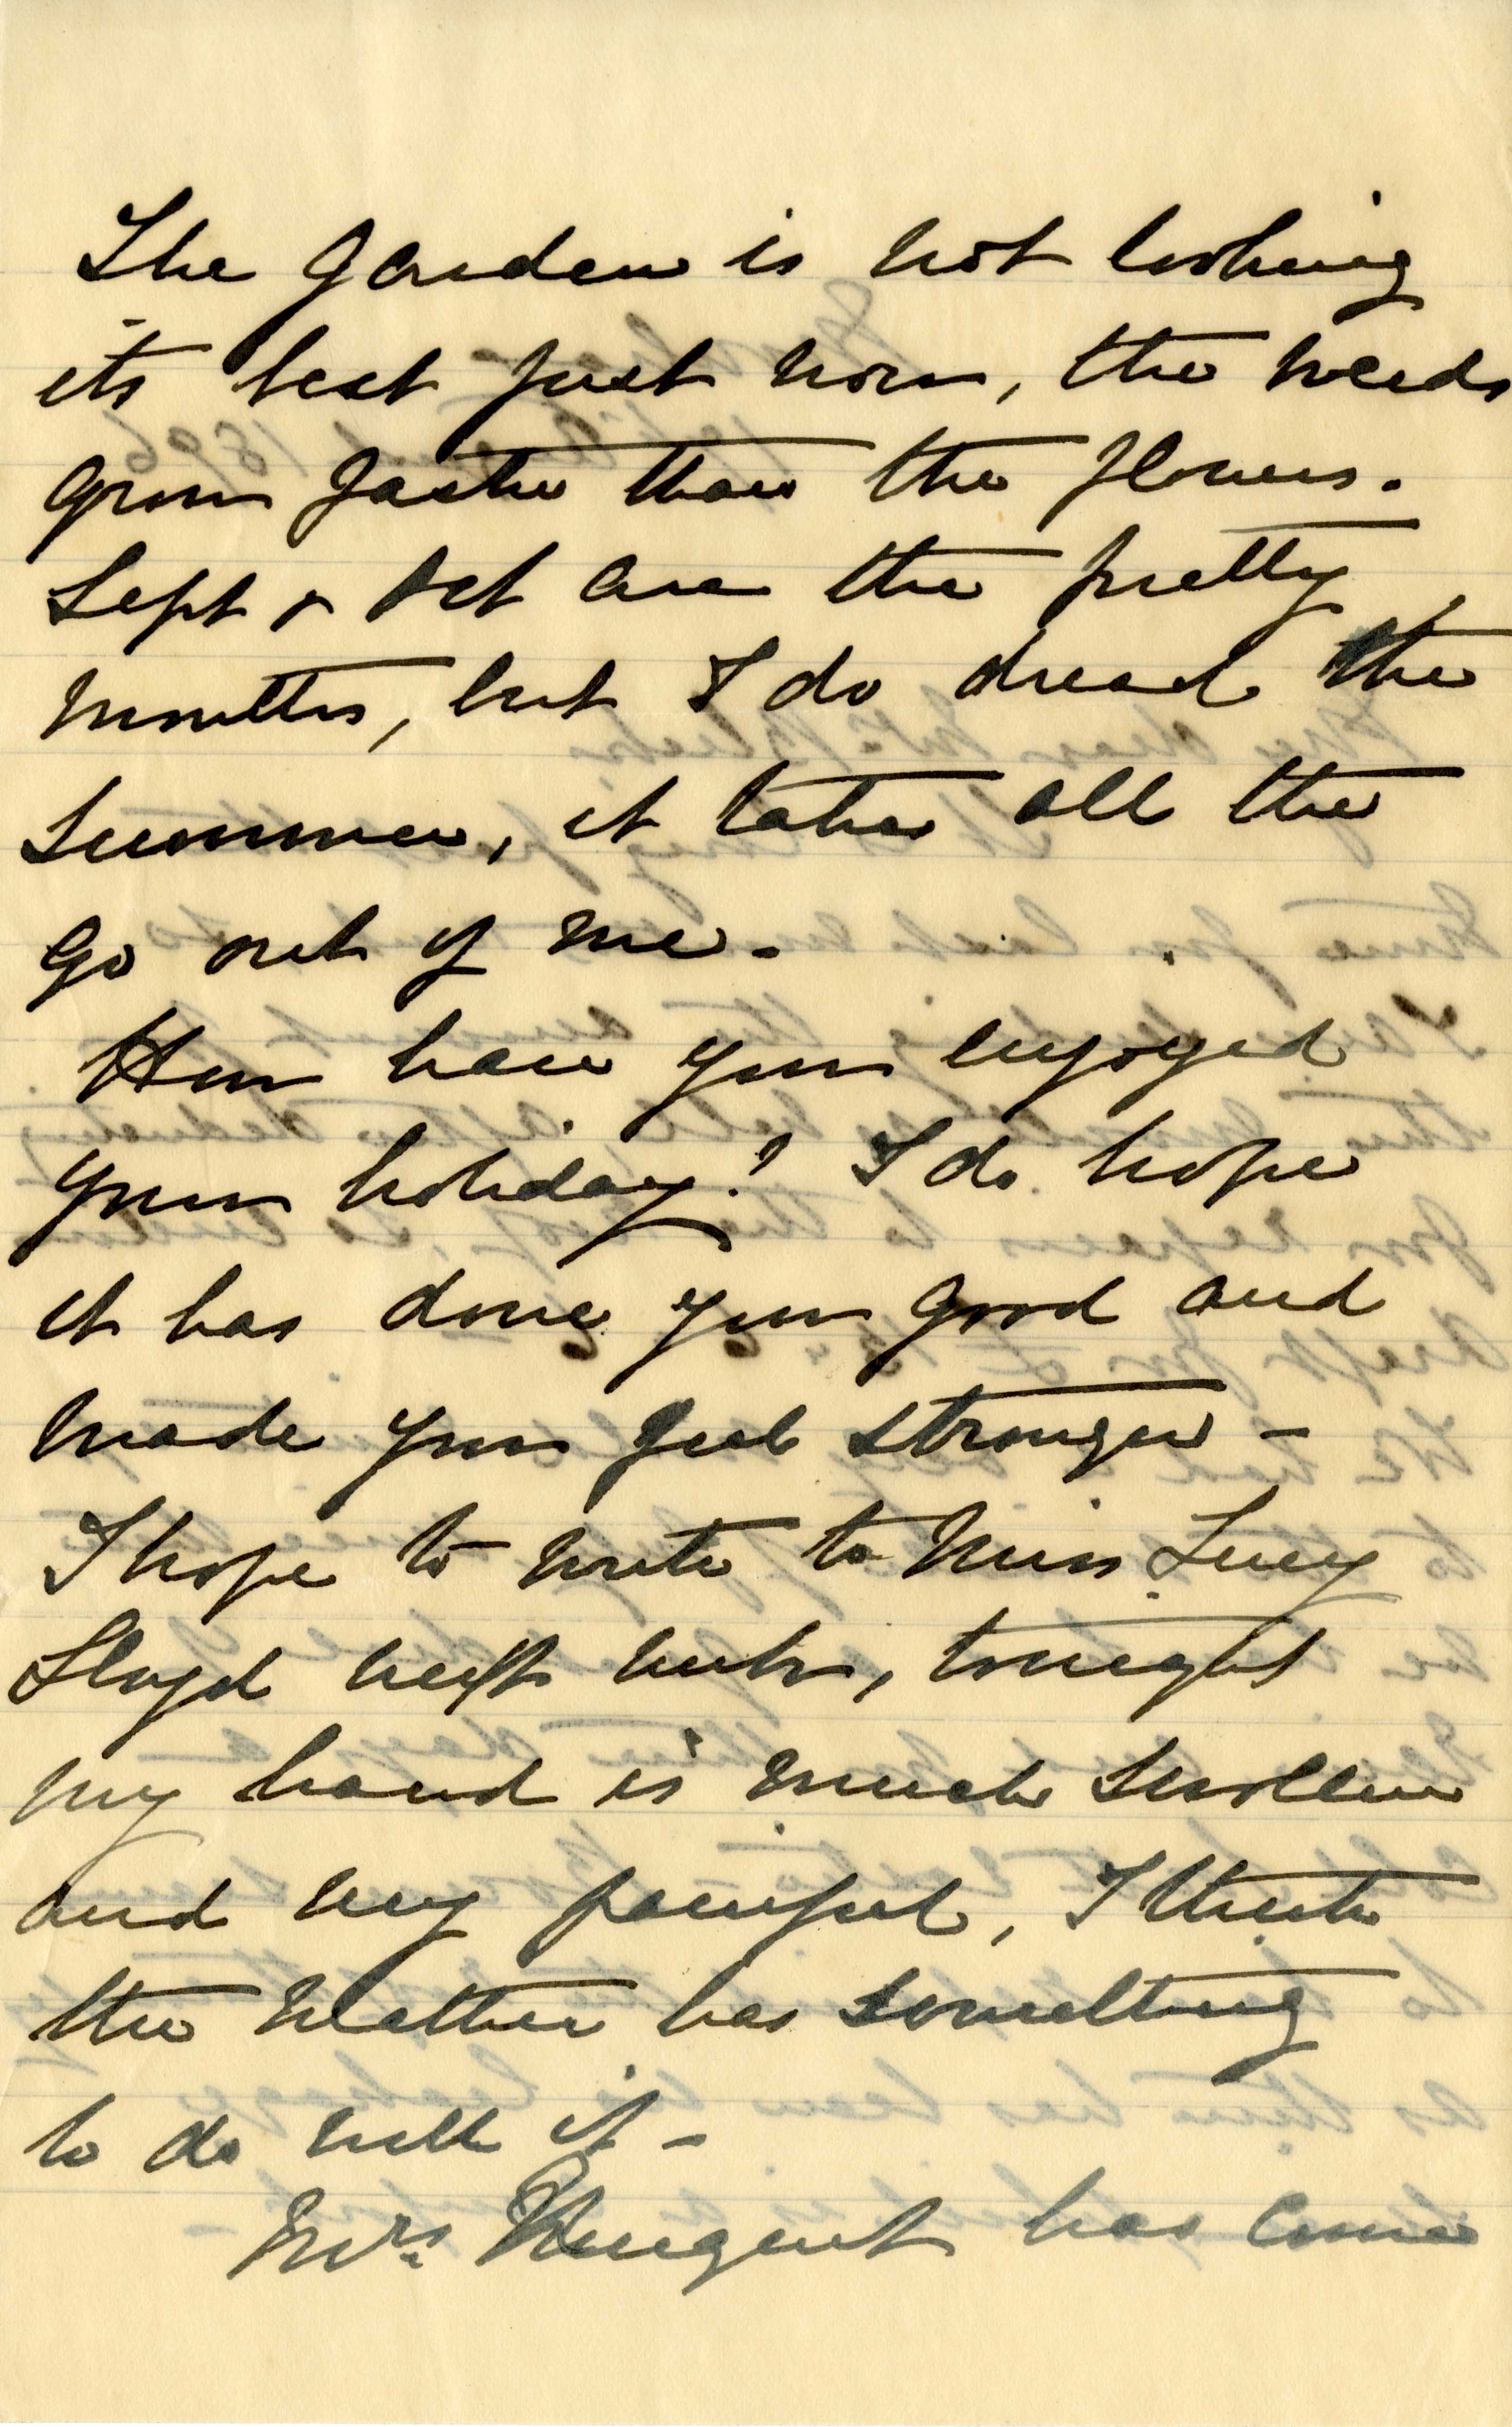 The garden is not looking
its best just now, the weeds
grow faster than the flowers.
Sept & Oct are the pretty
months, but I do dread the
Summer, it takes all the
go out of me.
How have you enjoyed
your holiday? I do hope
it has done you good and
made you feel stronger -
I hope to write to Miss Lucy
Lloyd next week, tonight
my hand is much swollen
and very painful, I think
the weather has something
to do with it -
Mrs. Nugent has come